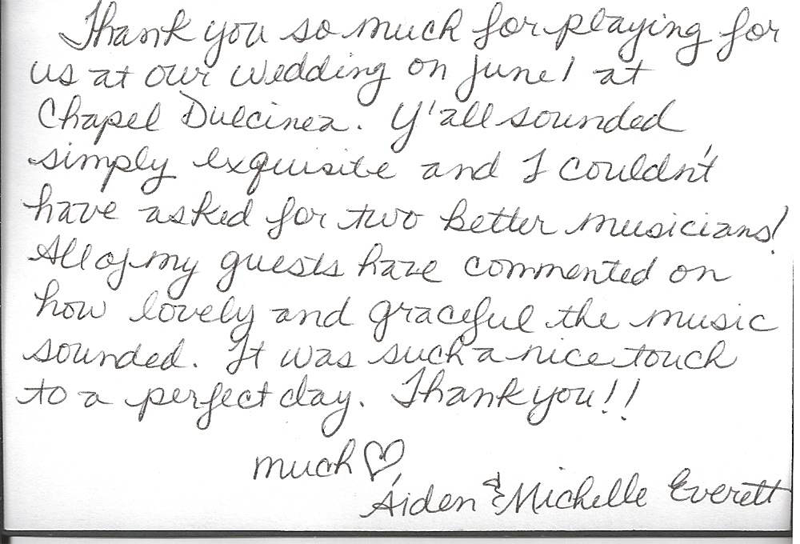 Thank you so much for playing for
us at our wedding on June 1 at
Chapel Dulcinea. Y'all sounded
simply exquisite and I couldn't
have asked for two better musicians!
All of my guests have commented on
how lovely and graceful the music
sounded. It was such a nice touch
to a perfect day. Thank you!!
much ♡,
Aiden & Michelle Everett